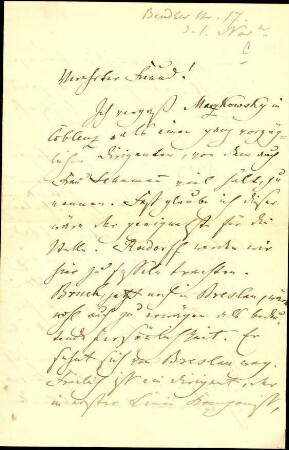 Bendler Str. 17.
d. 1. Nov
Verehrter Freund!
Ich vergaß Maszkowsky in
Coblenz als einen ganz vorzüg-
lichen Dirigenten, von dem auch
Frau Schumann viel hält, zu
nennen. Fast glaube ich dieser
wäre der geeignetste für die
Stelle. Rudorff werden wir
hier zu fesseln trachten.
Bruch, jetzt noch in Breslau, wäre
wohl auch zu erwägen als bedeu-
tende Persönlichkeit. Er
sehnt sich von Breslau weg.
Freilich ist ein Dirigent, der
in erster Linie Komponist,